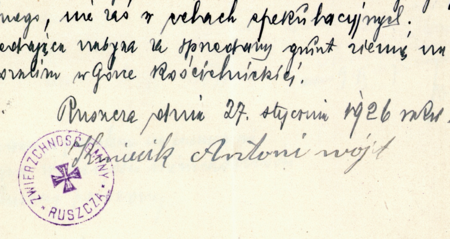 nego, nie zaś w celach spekulacyjnych.
edająca nabywa za sprzedany grunt ziemię na
w Górze Kościelnickiej.
Ruszcza dnia 27. stycznia 1926 roku.
Kmiecik Antoni wójt
ZWIERZCHNOŚĆ GMINY
RUSZCZA